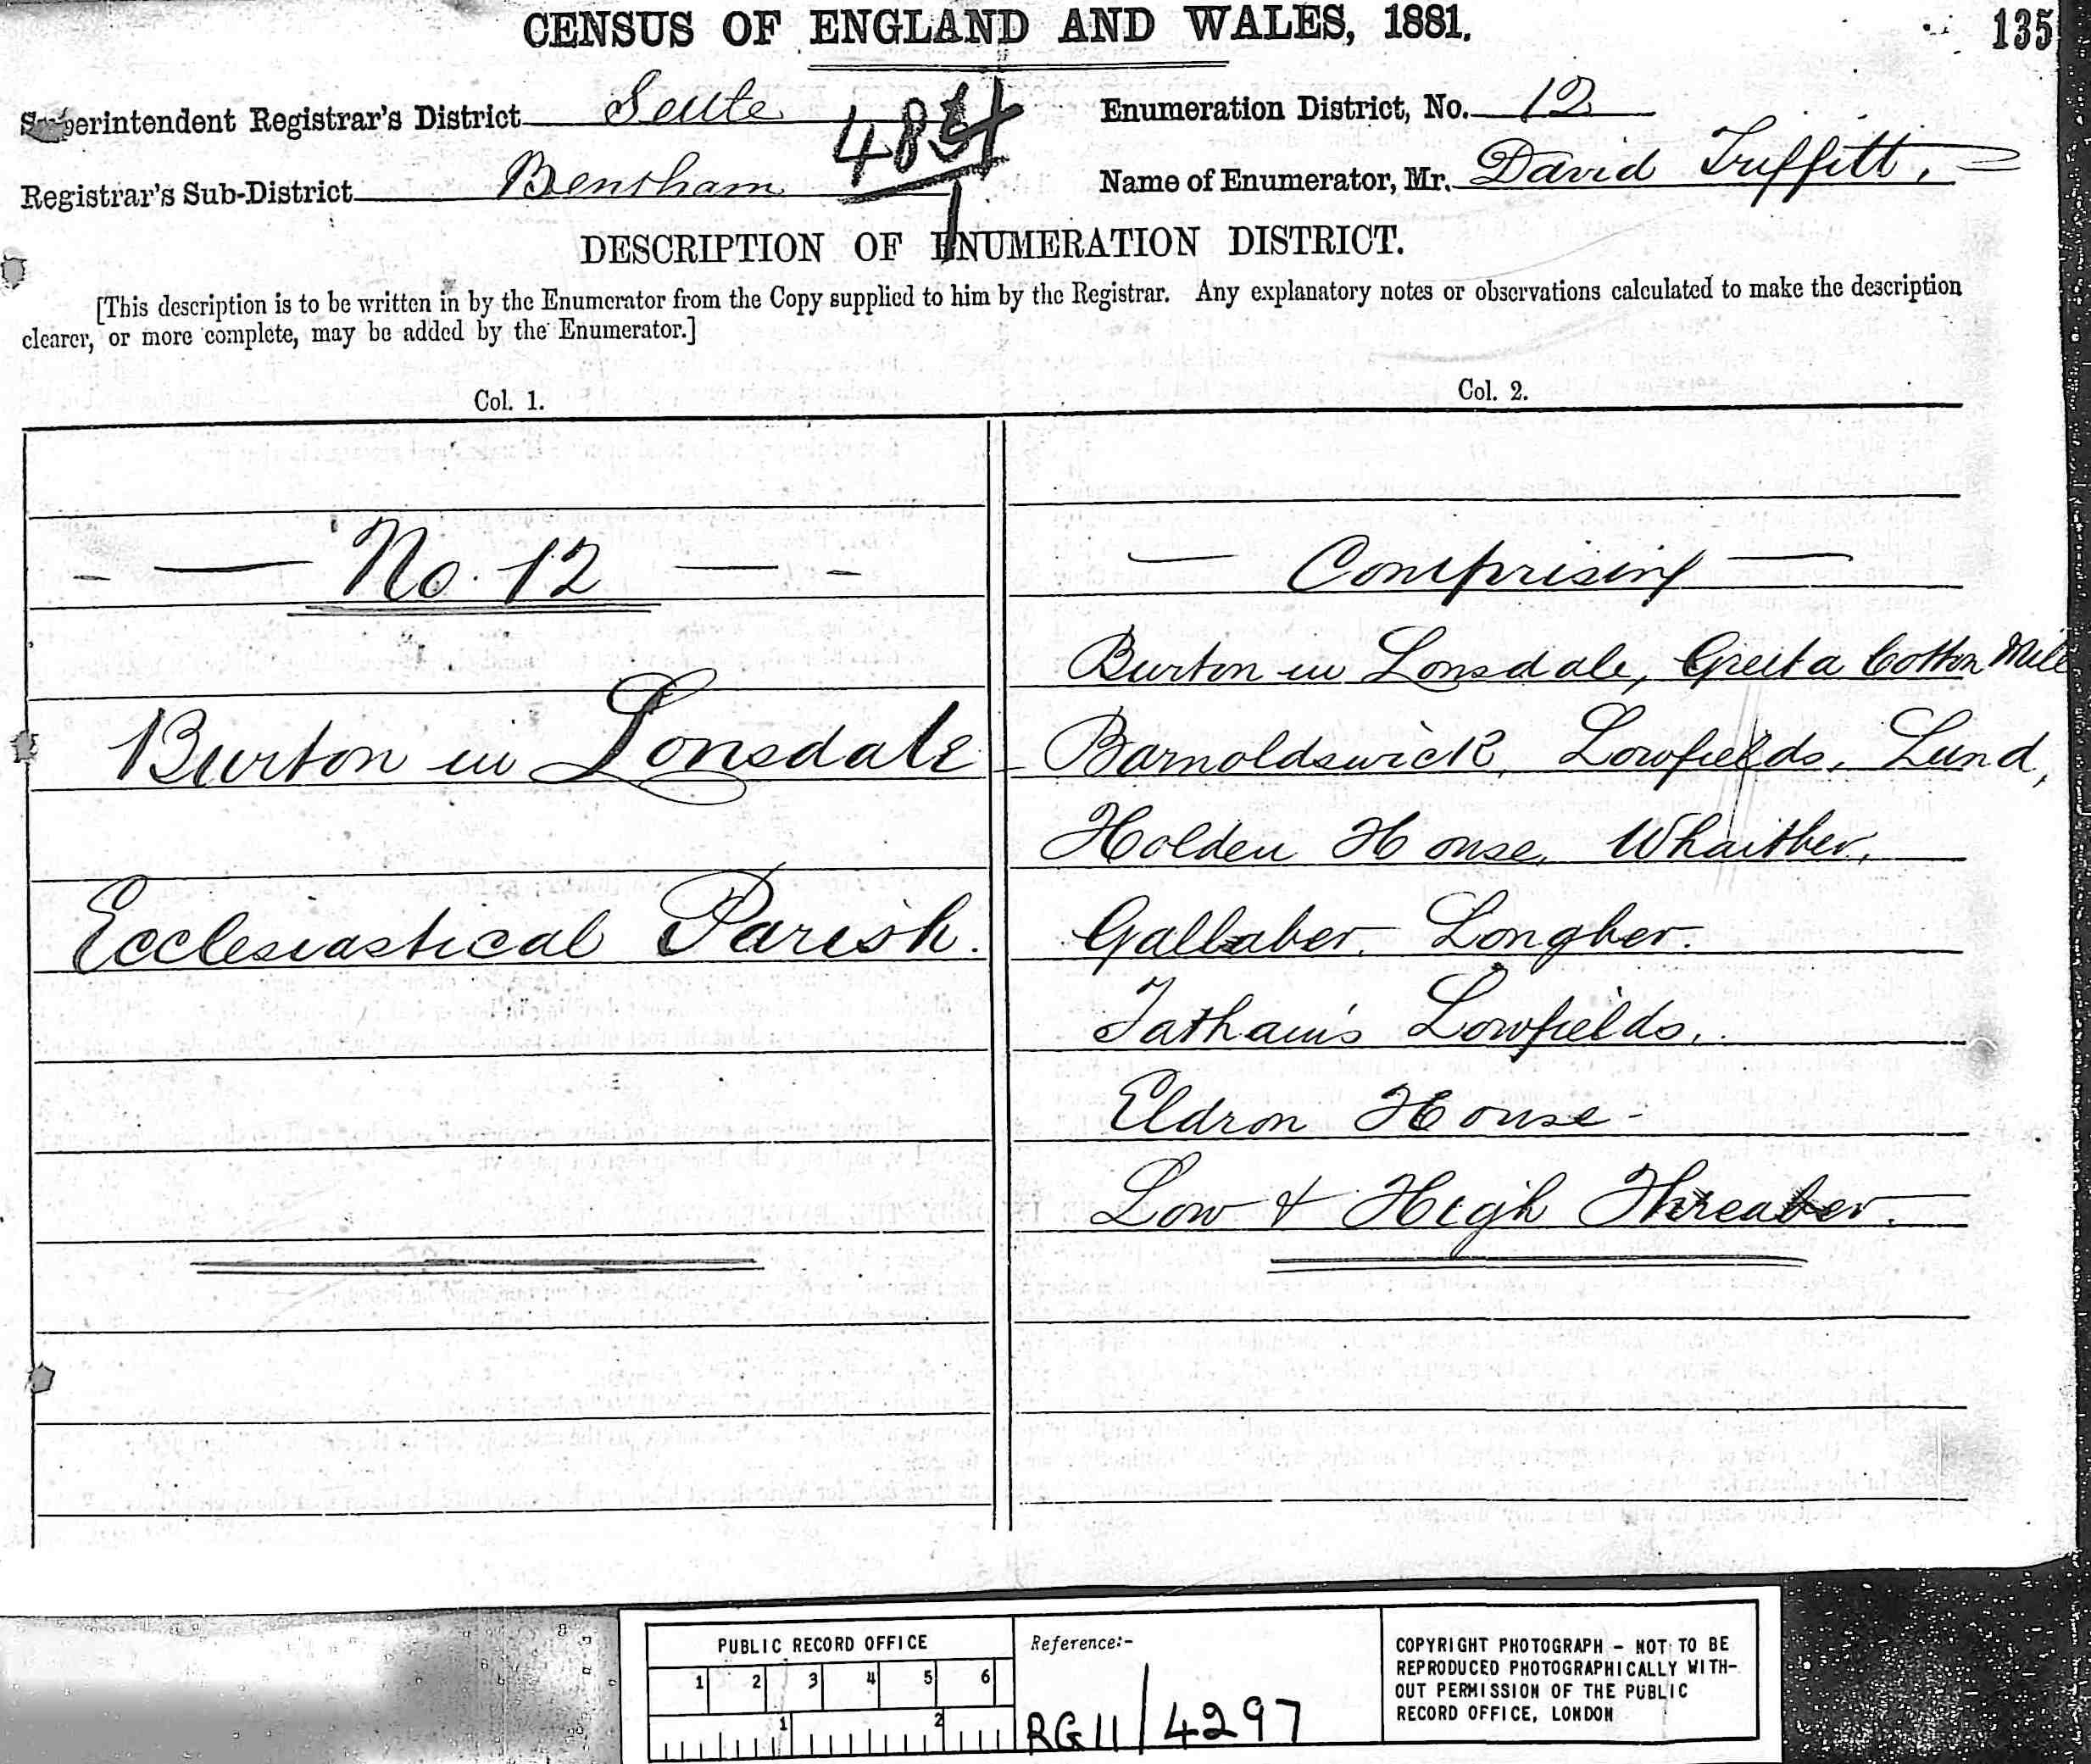 CENSUS OF ENGLAND AND WALES, 1881.
135
Superintendent Registrar's District Settle
Enumeration District, No. 12
Registrar's Sub-District Bentham
Name of Enumerator, Mr. David Triffitt,
DESCRIPTION OF ENUMERATION DISTRICT.
[This description is to be written in by the Enumerator from the Copy supplied to him by the Registrar. Any explanatory notes or observations calculated to make the description
clearer, or more complete, may be added by the Enumerator.]
Col. 1.
Col. 2.
No. 12
Burton in Lonsdale
Ecclesiastical Parish.
Comprising
Burton in Lonsdale, Greeta Cotton Mill
Barnoldswick, Lowfields, Lund,
Holden House, Whaitber,
Gallaber, Longber.
Tatham's Lowfields,
Eldron House -
Low & High Threaber.
PUBLIC RECORD OFFICE
1 2 3 4 5 6
1 2
Reference:-
RG11/4297
COPYRIGHT PHOTOGRAPH - NOT TO BE
REPRODUCED PHOTOGRAPHICALLY WITH-
OUT PERMISSION OF THE PUBLIC
RECORD OFFICE, LONDON